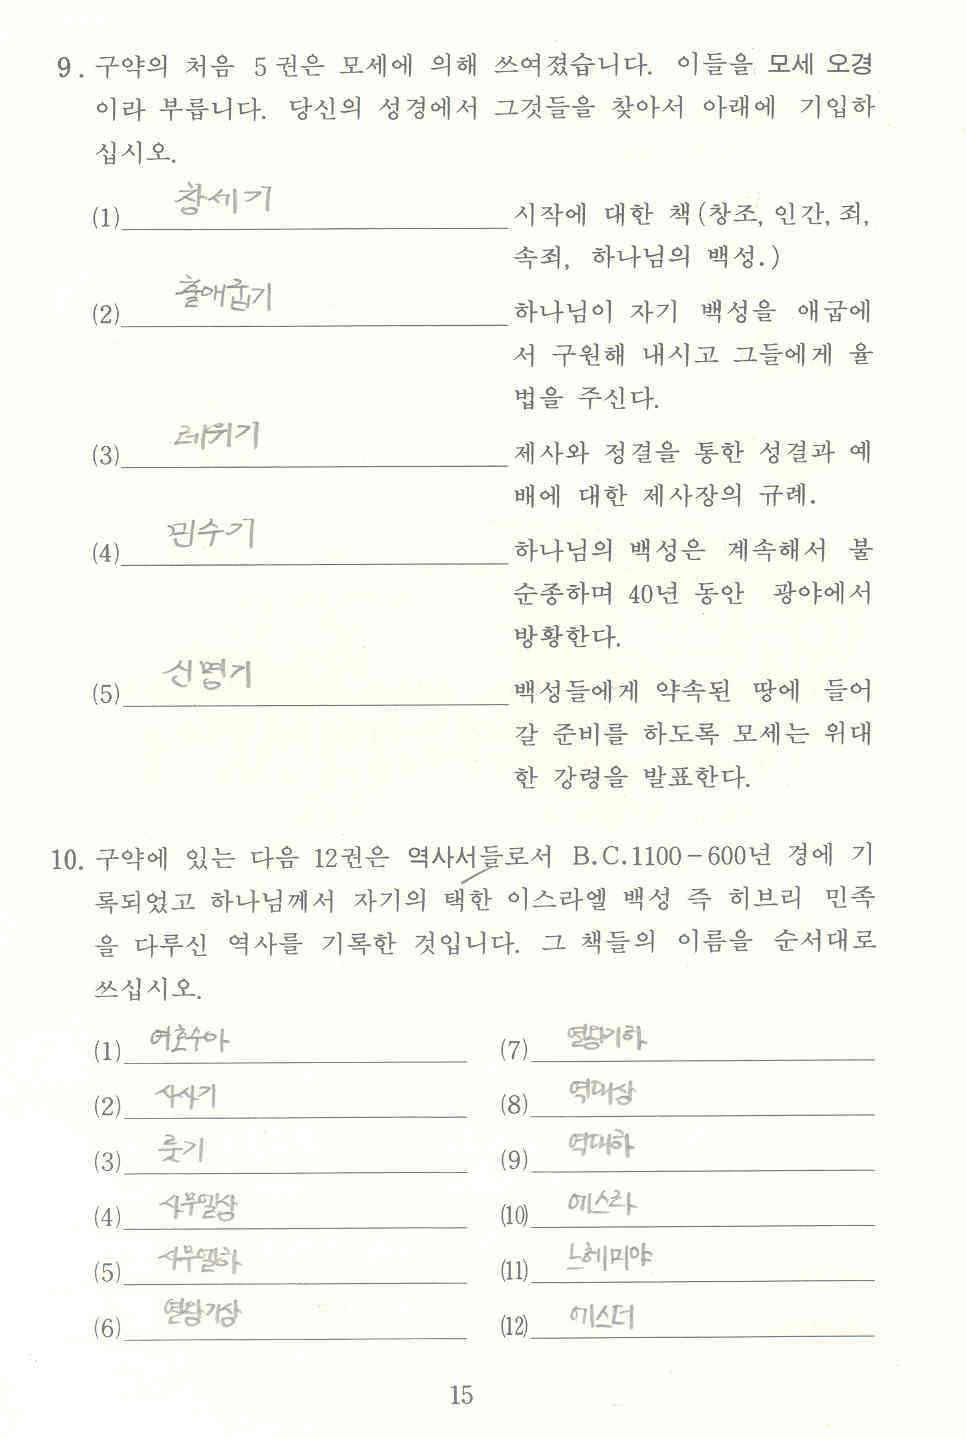 9. 구약의 처음 5권은 모세에 의해 쓰여졌습니다. 이들을 모세 오경
이라 부릅니다. 당신의 성경에서 그것들을 찾아서 아래에 기입하
십시오.
(1) 창세기 시작에 대한 책(창조, 인간, 죄,
속죄, 하나님의 백성.)
(2) 출애굽기 하나님이 자기 백성을 애굽에
서 구원해 내시고 그들에게 율
법을 주신다.
(3) 레위기 제사와 정결을 통한 성결과 예
배에 대한 제사장의 규례.
(4) 민수기 하나님의 백성은 계속해서 불
순종하며 40년 동안 광야에서
방황한다.
(5) 신명기 백성들에게 약속된 땅에 들어
갈 준비를 하도록 모세는 위대
한 강령을 발표한다.
10. 구약에 있는 다음 12권은 역사서들로서 B.C.1100－600년 경에 기
록되었고 하나님께서 자기의 택한 이스라엘 백성 즉 히브리 민족
을 다루신 역사를 기록한 것입니다. 그 책들의 이름을 순서대로
쓰십시오.
(1) 여호수아 (7) 열왕기하
(2) 사사기 (8) 역대상
(3) 룻기 (9) 역대하
(4) 사무엘상 (10) 에스라
(5) 사무엘하 (11) 느헤미야
(6) 열왕기상 (12) 에스더
15